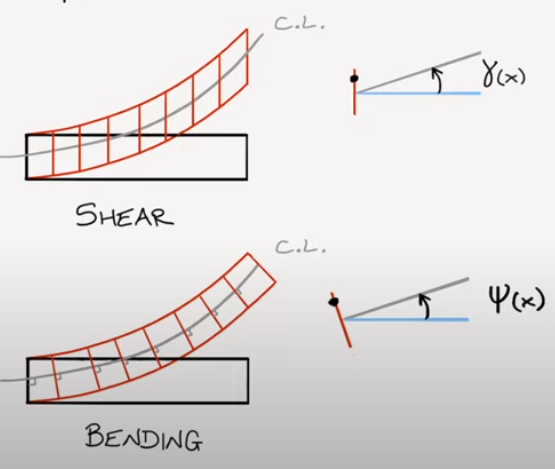 C.L.
γ(x)
SHEAR
C.L.
ψ(x)
BENDING